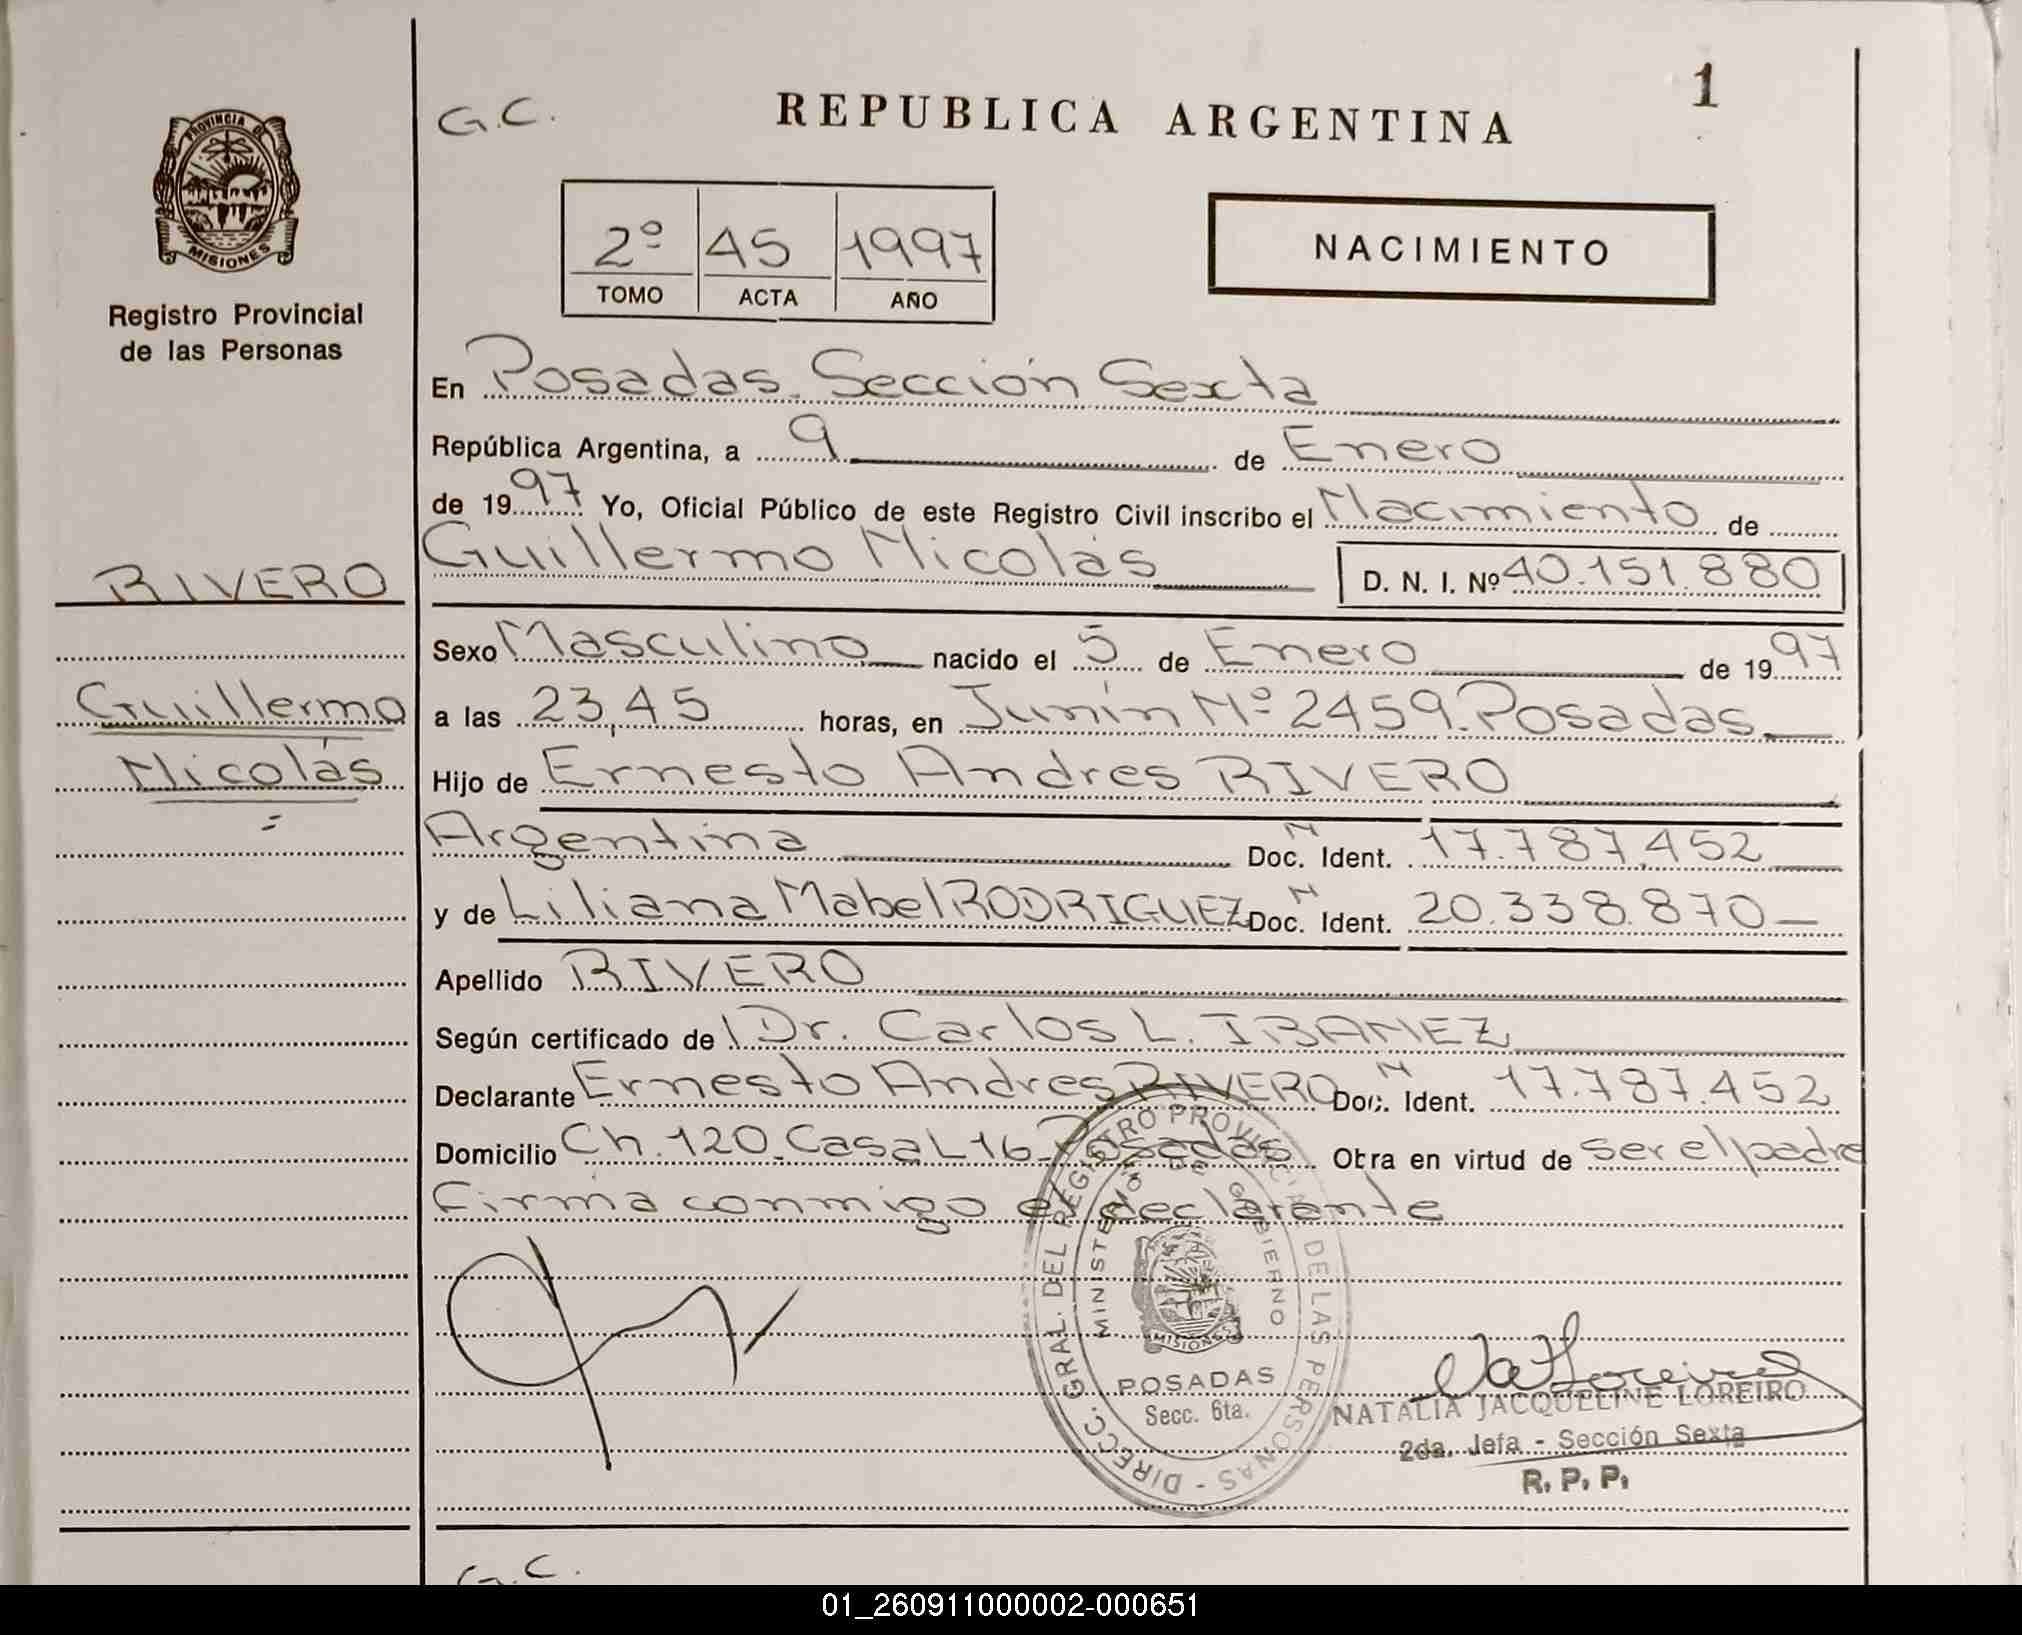 1
G.C.
REPUBLICA ARGENTINA
PROVINCIA DE
MISIONES
Registro Provincial
de las Personas
2º 45 1997
TOMO ACTA AÑO
NACIMIENTO
En Posadas. Sección Sexta
República Argentina, a 9 de Enero
de 1997 Yo, Oficial Público de este Registro Civil inscribo el Nacimiento de
Guillermo Nicolás D. N. I. Nº 40.151.880
RIVERO
Sexo Masculino nacido el 5 de Enero de 1997
Guillermo
a las 23,45 horas, en Junín Nº 2459. Posadas
Nicolás
Hijo de Ernesto Andres RIVERO
Argentina Doc. N Ident. 17.787.452
y de Liliana Mabel RODRIGUEZ Doc. N Ident. 20.338.870
Apellido RIVERO
Según certificado de Dr. Carlos L. IBAÑEZ
Declarante Ernesto Andres RIVERO Doc. N Ident. 17.787.452
Domicilio Ch. 120. Casa L 16. Posadas Obra en virtud de ser el padre
Firma conmigo el declarante
DIRECC. GRAL. DEL REGISTRO PROVINCIAL DE LAS PERSONAS -
MINISTERIO DE GOBIERNO
MISIONES
POSADAS
Secc. 6ta.
NATALIA JACQUELINE LOREIRO
2da. Jefa - Sección Sexta
R. P. P.
G.C.
01_260911000002-000651